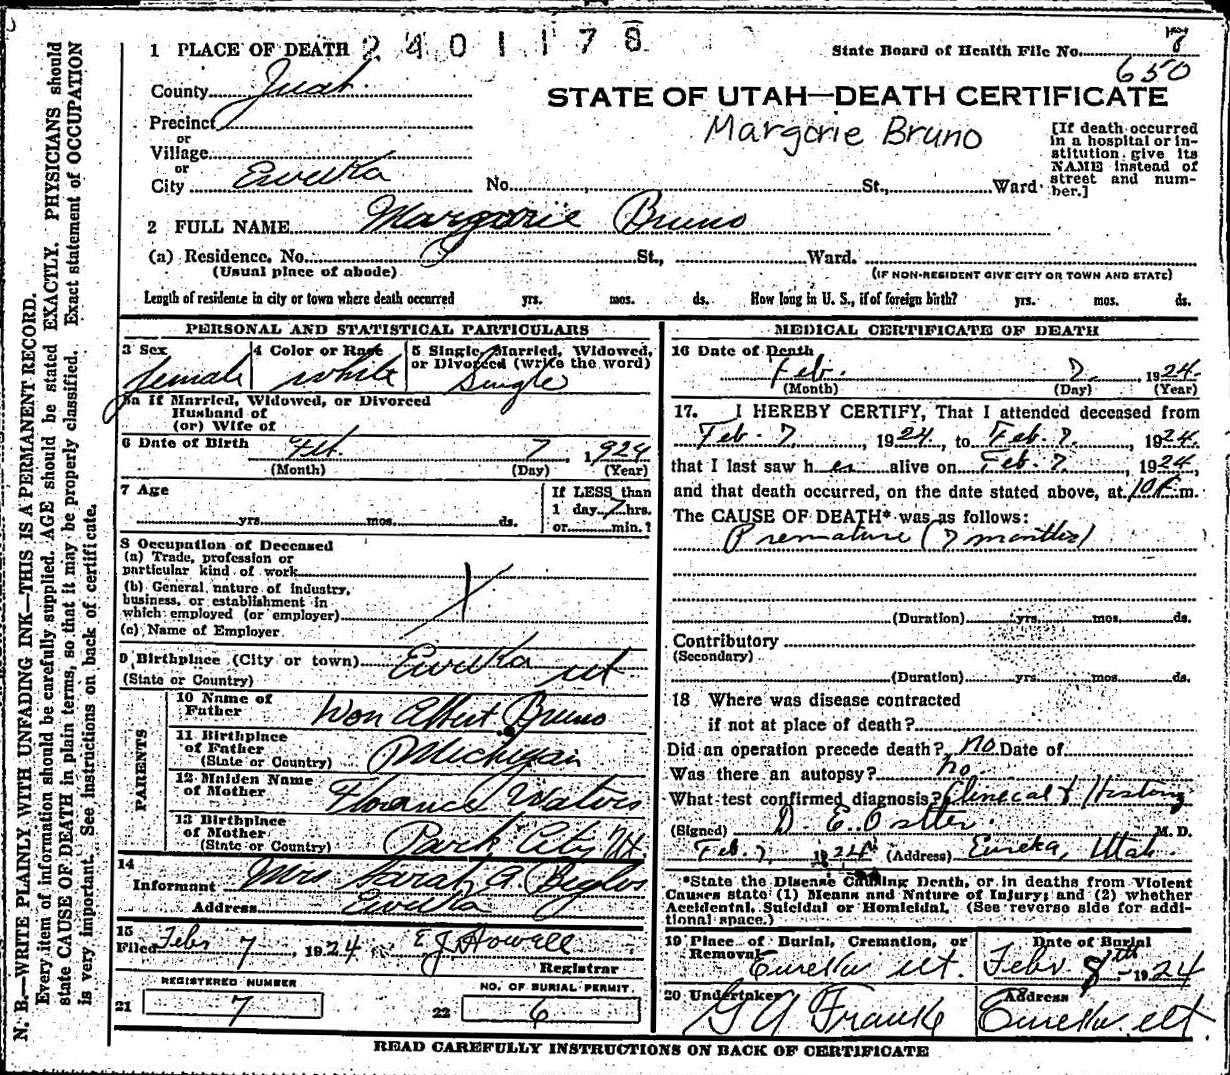 1 PLACE OF DEATH 2401178
State Board of Health File No. 8
650
County Juab
STATE OF UTAH—DEATH CERTIFICATE
Margorie Bruno
Precinct
or
Village
or
City Eureka No. St., Ward
[If death occurred
in a hospital or in-
stitution, give its
NAME instead of
street and num-
ber.]
2 FULL NAME Margorie Bruno
(a) Residence. No. St., Ward.
(Usual place of abode) (IF NON-RESIDENT GIVE CITY OR TOWN AND STATE)
Length of residence in city or town where death occurred yrs. mos. ds. How long in U. S., if of foreign birth? yrs. mos. ds.
PERSONAL AND STATISTICAL PARTICULARS
3 Sex 4 Color or Race 5 Single, Married, Widowed,
or Divorced (write the word)
female white Single
5a If Married, Widowed, or Divorced
Husband of
(or) Wife of
6 Date of Birth Feb. 7 1924
(Month) (Day) (Year)
7 Age yrs. mos. ds.
If LESS than
1 day, 7 hrs.
or min.?
8 Occupation of Deceased
(a) Trade, profession or
particular kind of work
(b) General nature of industry,
business, or establishment in
which employed (or employer)
(c) Name of Employer
9 Birthplace (City or town) Eureka Ut
(State or Country)
PARENTS
10 Name of
Father Won Albert Bruno
11 Birthplace
of Father
(State or Country) Michigan
12 Maiden Name
of Mother Florance Waters
13 Birthplace
of Mother
(State or Country) Park City Ut.
14
Informant Mrs Sarah A.
Address Eureka
15
Filed Febr 7, 1924 E J Howell
Registrar
REGISTERED NUMBER
21 7
NO. OF BURIAL PERMIT.
22 6
MEDICAL CERTIFICATE OF DEATH
16 Date of Death
Feb. 7. 1924.
(Month) (Day) (Year)
17. I HEREBY CERTIFY, That I attended deceased from
Feb. 7, 1924, to Feb. 7, 1924.
that I last saw her alive on Feb. 7, 1924,
and that death occurred, on the date stated above, at 10 P. m.
The CAUSE OF DEATH* was as follows:
Premature (7 months)
(Duration) yrs. mos. ds.
Contributory
(Secondary)
(Duration) yrs. mos. ds.
18 Where was disease contracted
if not at place of death?
Did an operation precede death? no Date of
Was there an autopsy? no
What test confirmed diagnosis? Clinical & History
(Signed) D. E. Ostler. M. D.
Feb. 7, 1924 (Address) Eureka, Utah.
*State the Disease Causing Death, or in deaths from Violent
Causes state (1) Means and Nature of Injury; and (2) whether
Accidental, Suicidal or Homicidal. (See reverse side for addi-
tional space.)
19 Place of Burial, Cremation, or
Removal Eureka Ut.
Date of Burial
Febr 8th 1924
20 Undertaker
G A Franke
Address
Eureka Ut
READ CAREFULLY INSTRUCTIONS ON BACK OF CERTIFICATE
N. B.—WRITE PLAINLY WITH UNFADING INK—THIS IS A PERMANENT RECORD.
Every item of information should be carefully supplied. AGE should be stated EXACTLY. PHYSICIANS should
state CAUSE OF DEATH in plain terms, so that it may be properly classified. Exact statement of OCCUPATION
is very important. See instructions on back of certificate.